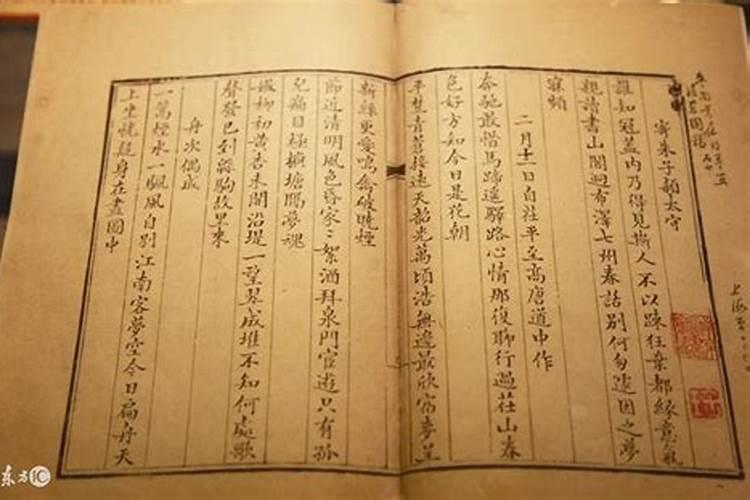 寄朱子頴太守
誰知冠蓋内乃得見斯人不以踈狂棄都緣意氣
親讀書山閣迥布澤七州春話别何匆遽因之夢
寐頻
二月十二日自社平至高唐道中作
奔馳敢惜馬蹄遥驛路心情那復聊行過茌山春
色好方知今日是花朝
平楚青葱接遠天韶光萬頃浩無邊最欣宿麥呈
新緑更愛鳴禽破曉煙
節近清明風色昏家〻絮酒拜泉門宦遊只有孤
兒痛目極橫塘隔夢魂
纖柳初黄杏未開沿堤一望翠成堆不知何處歌
聲發已到繇駒故里來
舟次偶成
一篙煙水一颿風自别江南客夢空今日扁舟天
上坐競疑身在畫圖中
上海
东方IC